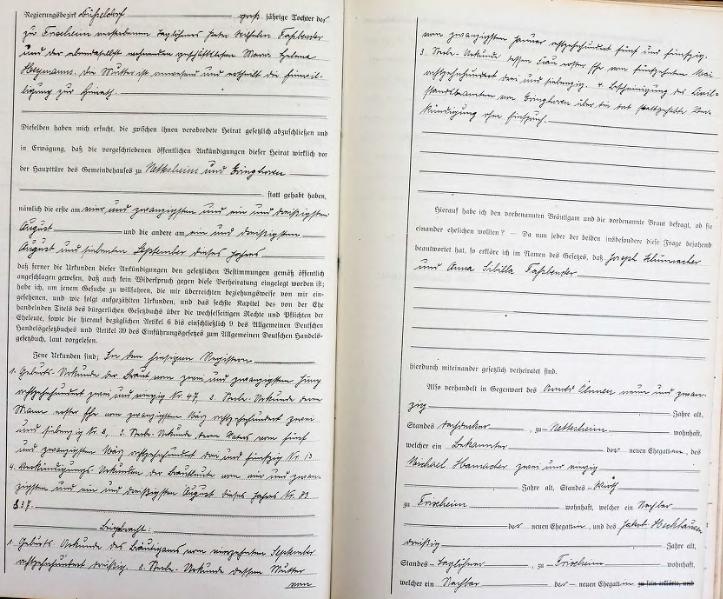 Regierungsbezirk Düsseldorf groß jährige Tochter des
zu Frixheim verstorbenen Taglöhners Peter Wilhelm Fahlender
und der ebendaselbst wohnenden geschäftslosen Maria Helena
Heymann. Die Mutter ist anwesend und ertheilt die Einwil-
ligung zur Heirath.
Dieselben haben mich ersucht, die zwischen ihnen verabredete Heirat gesetzlich abzuschließen und
in Erwägung, daß die vorgeschriebenen öffentlichen Ankündigungen dieser Heirat wirklich vor
der Hauptthüre des Gemeindehauses zu Nettesheim und
statt gehabt haben,
nämlich die erste am vier und zwanzigsten und ein und dreißigsten
August und die andere am ein und dreißigsten
August und siebenten September dieses Jahres
daß ferner die Urkunden dieser Ankündigungen den gesetzlichen Bestimmungen gemäß öffentlich
angeschlagen gewesen, daß auch kein Widerspruch gegen diese Verheiratung eingelegt worden ist;
habe ich, um jenem Gesuche zu willfahren, die mir überreichten beziehungsweise von mir ein-
gesehenen, und wie folgt aufgezählten Urkunden, und das sechste Kapitel des von der Ehe
handelnden Titels des bürgerlichen Gesetzbuchs über die wechselseitigen Rechte und Pflichten der
Eheleute, sowie die hierauf bezüglichen Artikel 6 bis einschließlich 9 des Allgemeinen Deutschen
Handelsgesetzbuches und Artikel 39 des Einführungsgesetzes zum Allgemeinen Deutschen Handels-
gesetzbuch, laut vorgelesen.
Jene Urkunden sind: In den hiesigen Registern
1. Geburts-Urkunde der Braut vom zwei und zwanzigsten
achtzehnhundert zwei und vierzig Nr. 47. 2. Sterbe-Urkunde deren
Mann erster Ehe vom zwanzigsten März achtzehnhundert zwei
und siebenzig Nr. 8, Sterbe-Urkunde deren Vaters vom fünf
und zwanzigsten März achtzehnhundert drei und fünfzig Nr. 13
4. Verkündigungs-Urkunden der Brautleute vom vier und zwan-
zigsten und ein und dreißigsten August dieses Jahres Nr.
Beigebracht:
1. Geburts-Urkunde des Bräutigams vom vierzehnten September
achtzehnhundert dreißig. 2. Sterbe-Urkunde dessen Mutter
vom
vom zwanzigsten Januar achtzehnhundert fünf und fünfzig.
3. Sterbe-Urkunde dessen Frau erster Ehe vom fünfzehnten Mai
achtzehnhundert drei und siebenzig. 4. Bescheinigung des Civil-
standsbeamten von über die dort stattgehabte Ver-
kündigung ohne Einspruch.
Hierauf habe ich den vorbenannten Bräutigam und die vorbenannte Braut befragt, ob sie
einander ehelichen wollen? – Da nun jeder der beiden insbesondere diese Frage bejahend
beantwortet hat, so erkläre ich im Namen des Gesetzes, daß Joseph Schumacher
und Anna Sibilla Fahlender
hierdurch miteinander gesetzlich verheiratet sind.
Also verhandelt in Gegenwart des Arnold neun und zwan-
zig Jahre alt,
Standes Dachdecker, zu Nettesheim wohnhaft,
welcher ein Bekannter der neuen Ehegatten, des
Michael Hamacher zwei und vierzig
Jahre alt, Standes Wirth
zu Frixheim wohnhaft, welcher ein Nachbar
der neuen Ehegatten, und des Jakob Beckhausen
dreißig Jahre alt,
Standes Taglöhner, zu Frixheim wohnhaft,
welcher ein Nachbar der neuen Ehegatten zu sein erkläre, und